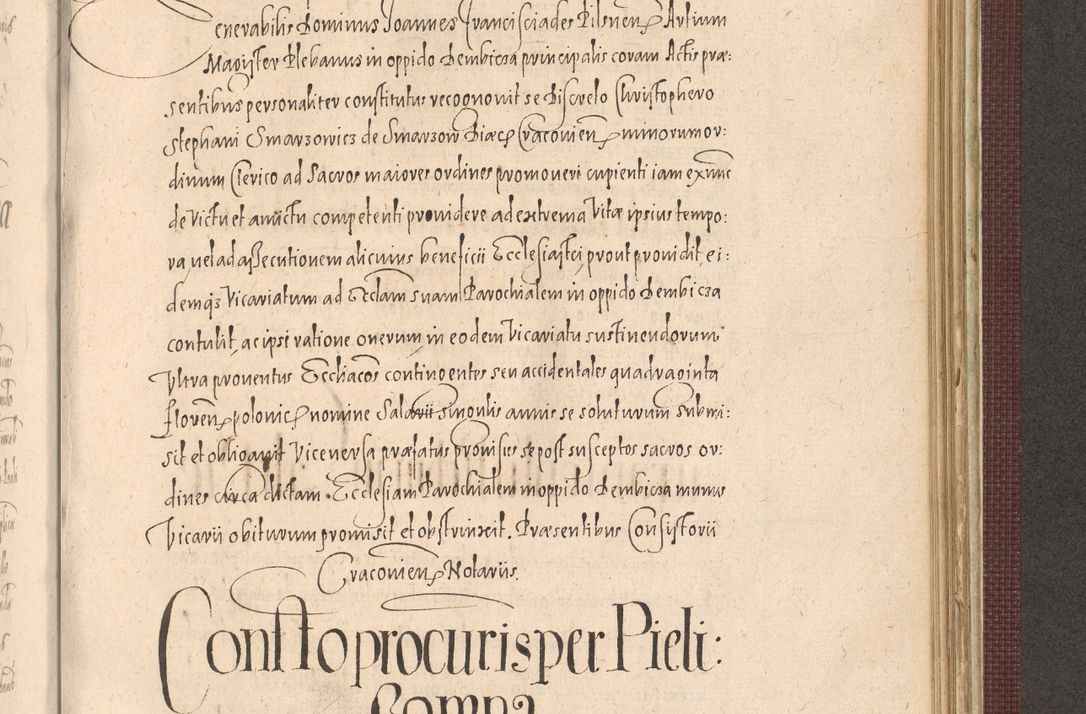 enerabilis Dominus Joannes Francisciades Pilsnen Artium
Magister Plebanus in oppido Dembicza principalis coram Actis præ:
sentibus personaliter constitutus recognovit se Discreto Christophero
Stephani Smarzowicz de Smarzow Diæc Cracovien minorum or:
dinum Clerico ad Sacros maiores ordines promoveri cupienti iam ex nunc
de Victu et amictu competenti providere ad extrema Vitæ ipsius tempo:
ra vel ad assecutionem alicuius beneficii Ecclesiastci prout providit, ei:
demqs Vicariatum ad Ecclam suam Parochialem in oppido Dembicza
contulit, ac ipsi ratione onerum in eodem Vicariatu sustinendorum
Ultra proventus Eccliacos contingentes seu accidentales quadraginta
Floren polonic nomine Salarii singulis annis se soluturum submi:
sit et obligavit Vice versa præfatus provisus se post susceptos sacros or:
dines circa dictam Ecclesiam Parochialem in oppido Dembicza munus
Vicarii obiturum promisit et obstrinxit. Præsentibus Consistorii
Cracovien Notariis.
Constto procuris per Pieli:
Compa